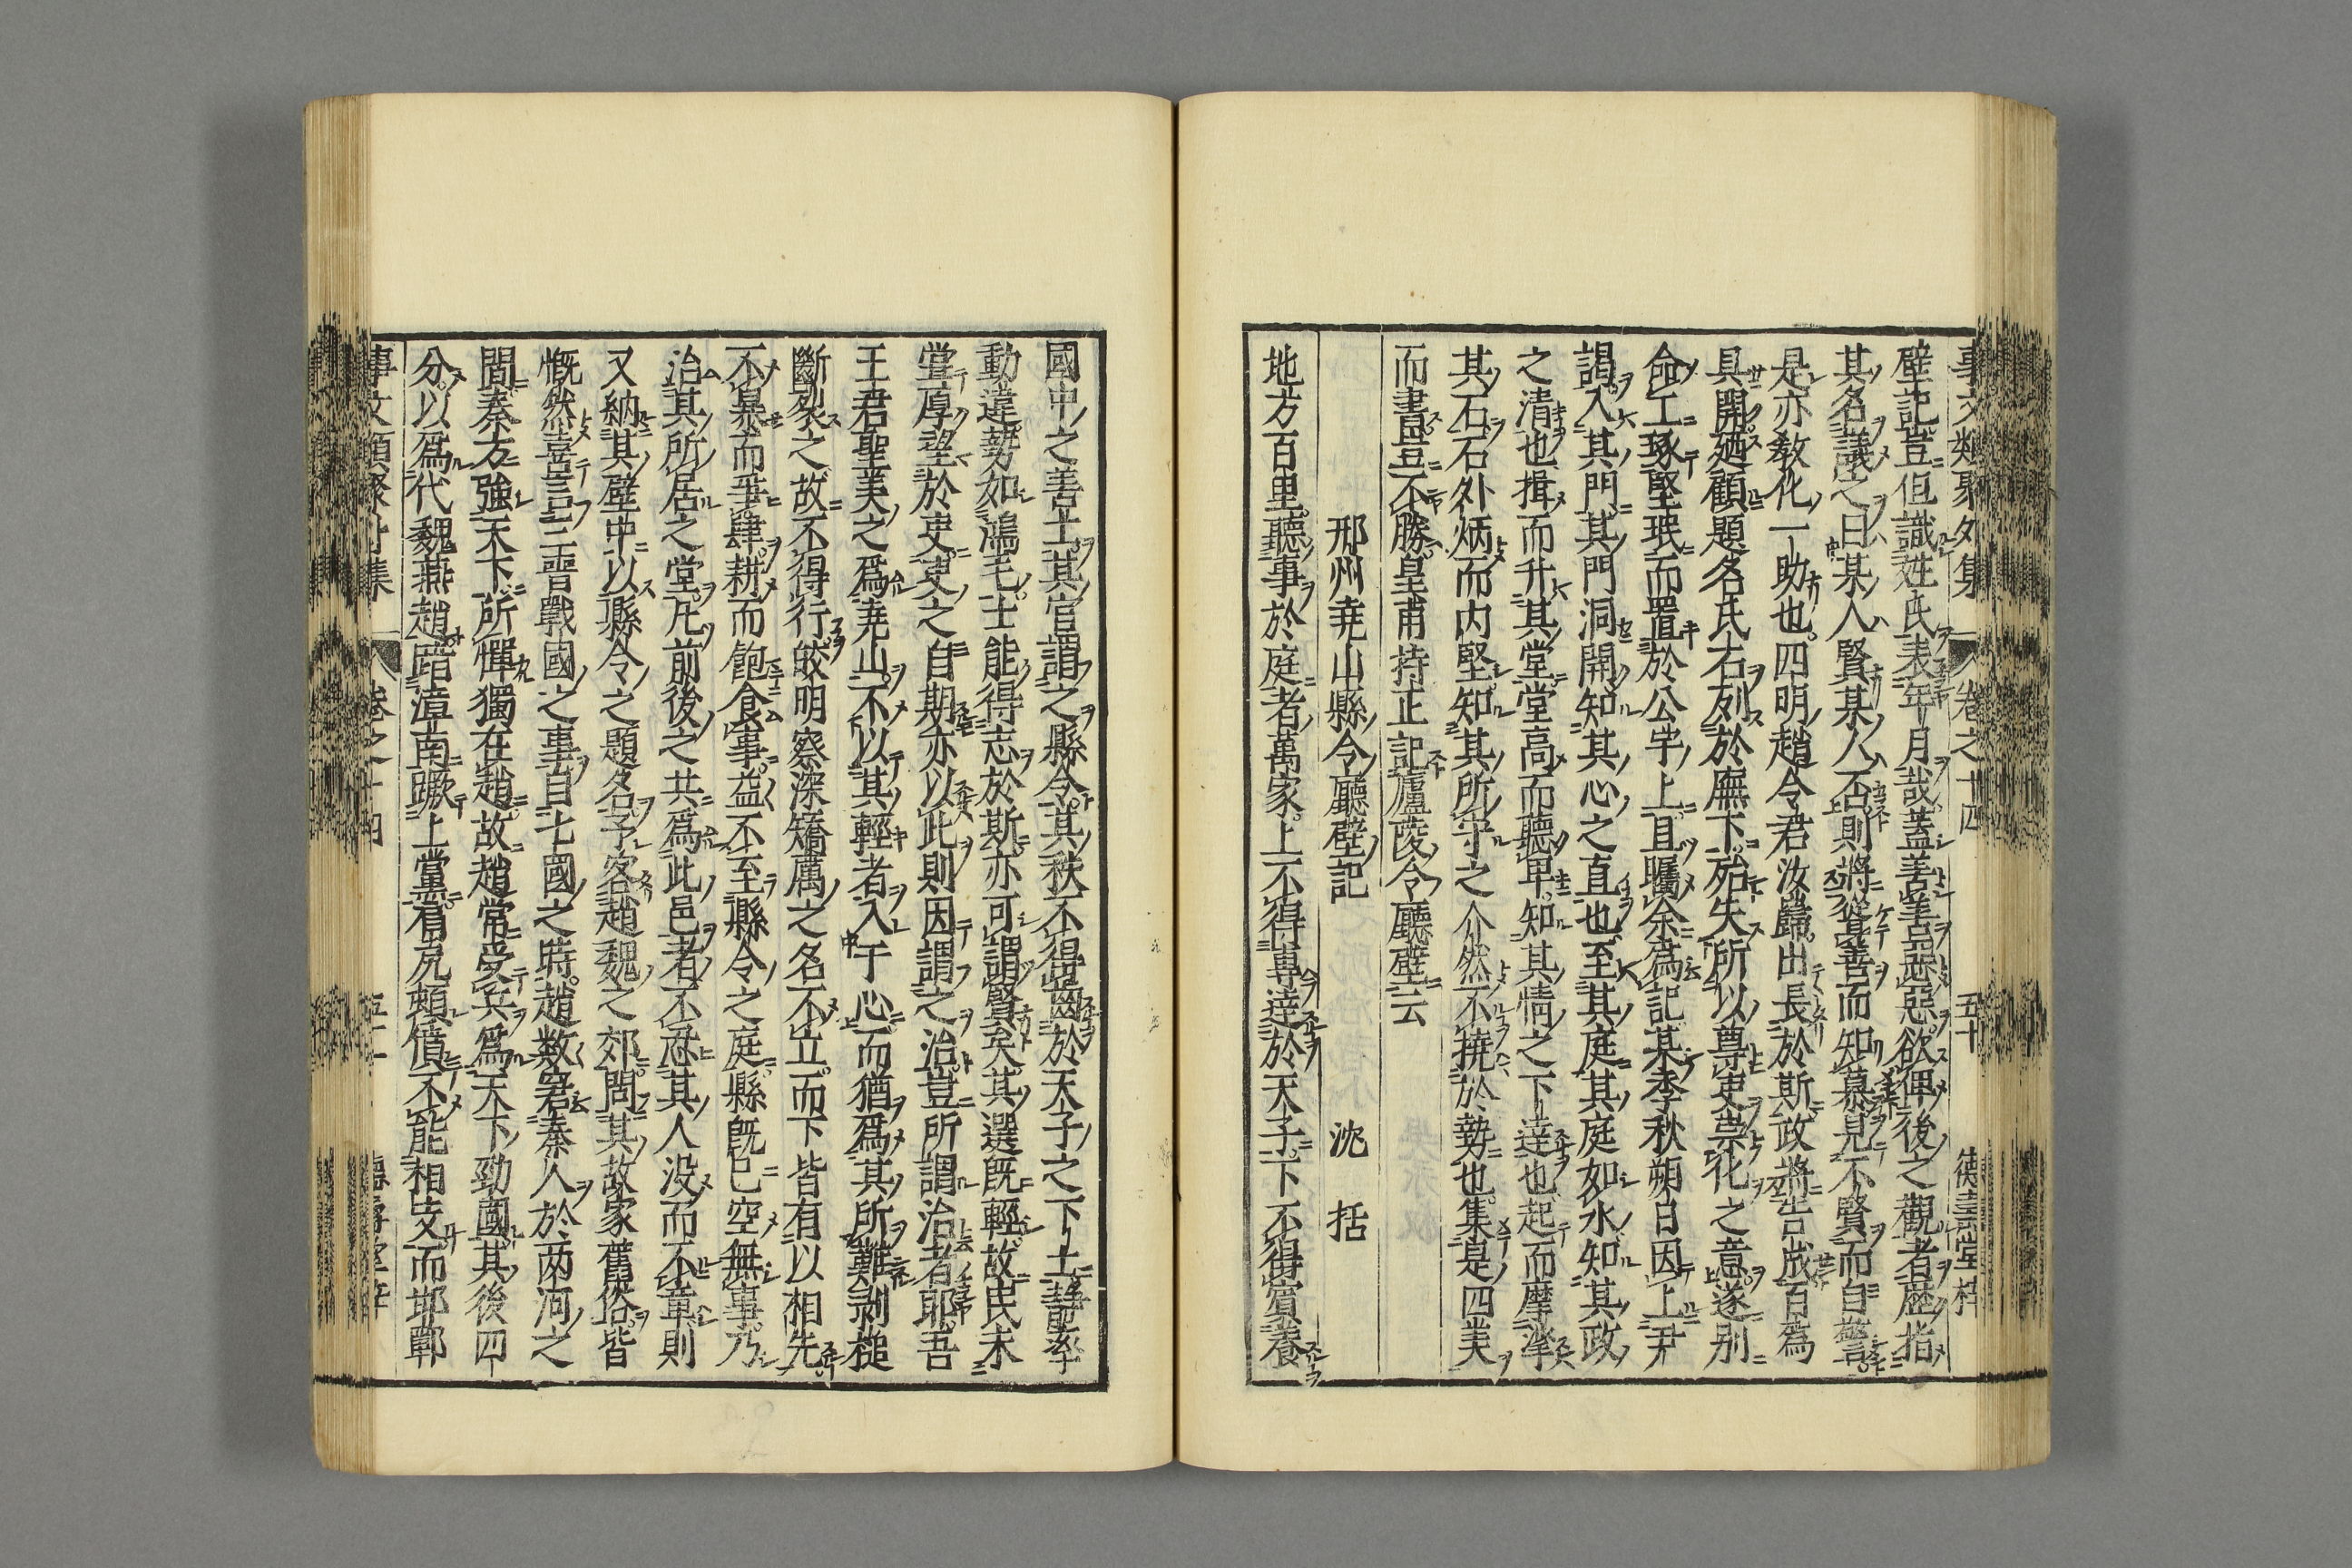 事文類聚外集 卷之十四 五十 德壽堂梓
壁記豈但識姓氏表年月哉蓋善善惡惡欲俾後之觀者歷指
其名議之曰某人賢某人否則將聳善而知慕見不賢而自警
是亦教化一助也四明趙令君汝歸出長於斯政將告成百爲
具開廼顧題名氏右列於廡下殆失所以尊吏崇化之意遂别
命工琢堅珉而置於公牢上且囑余爲記某季秋朔日因上尹
謁入其門其門洞開知其心之直也至其庭其庭如水知其政
之清也揖而升其堂堂高而聽卑知其情之下達也起而摩挲
其石石外炳而内堅知其所守之介然不撓於勢也集是四美
而書豈不勝皇甫持正記廬陵令廳壁云
邢州堯山縣令廳壁記 沈括
地方百里聽事於庭者萬家上不得專達於天子下不得賓養
國中之善士其官謂之縣令其秩不得齒於天子之下士輕率
動違勢如鴻毛士能得志於斯亦可謂賢矣其選既輕故民未
嘗厚望於吏吏之自期亦以此則因謂之治豈所謂治者耶吾
王君聖美之爲堯山不以其輕者入于心而猶爲其所難剥槌
斷裂之故不得行皎明察深矯厲之名不立而下皆有以相先
不暴而爭肆耕而飽食事益不至縣令之庭縣既已空無事乃
治其所居之堂凡前後之共爲此邑者不忍其人没而不章則
又納其壁中以縣令之題名予客趙魏之郊問其故家舊俗皆
慨然喜言三晉戰國之事自七國之時趙數窘秦人於兩河之
間秦方強天下所憚獨在趙故趙常受兵爲天下勁國其後四
分以爲代魏燕趙踣漳南蹶上黨有尻頓僨不能相支而邯鄲
事文類聚外集 卷之十四 五十一